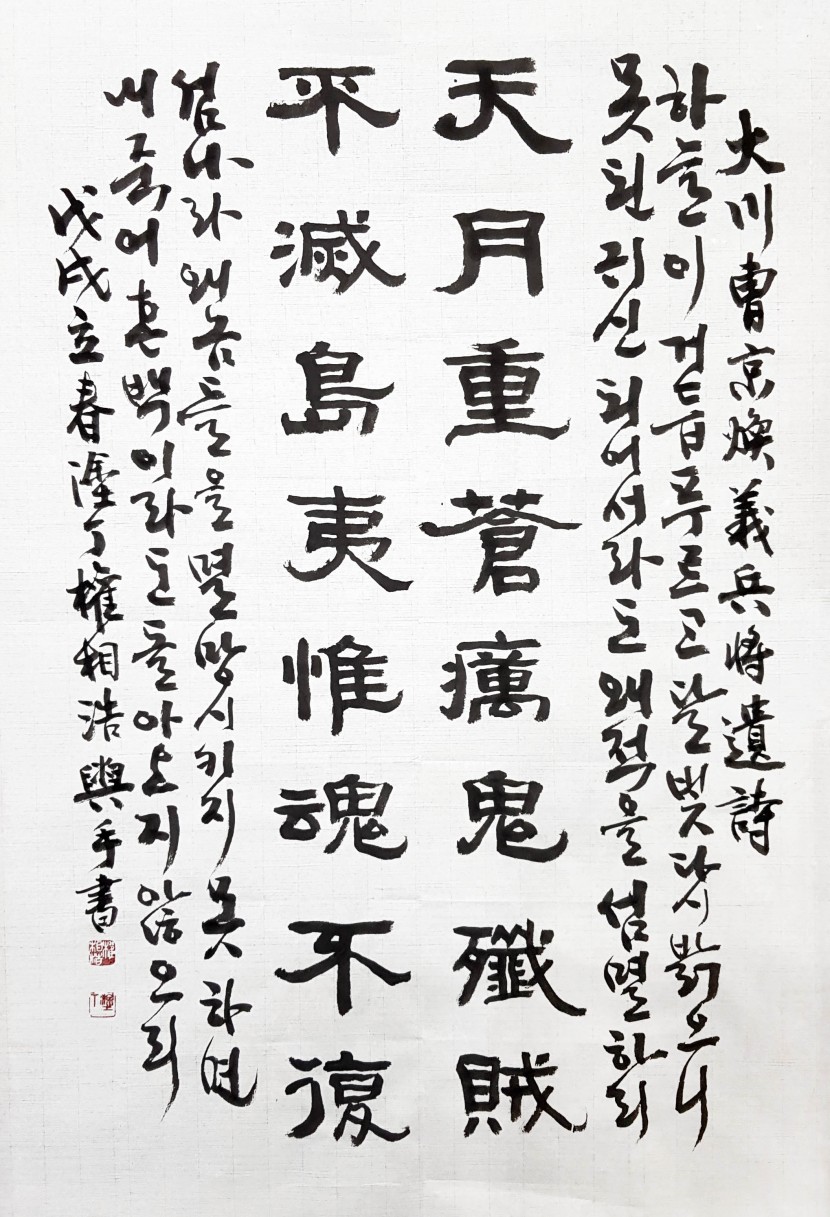 大川曺京煥義兵將遺詩
하늘이 거듭 푸르고 달빛 다시 밝으니
못된 귀신 되어서라도 왜적을 섬멸하리
天月重蒼癘鬼殲賊
平滅島夷惟魂不復
섬나라 왜놈들을 멸망시키지 못하면
내 죽어 혼백이라도 돌아오지 않으리
戊戌立春塗丁權相浩手書